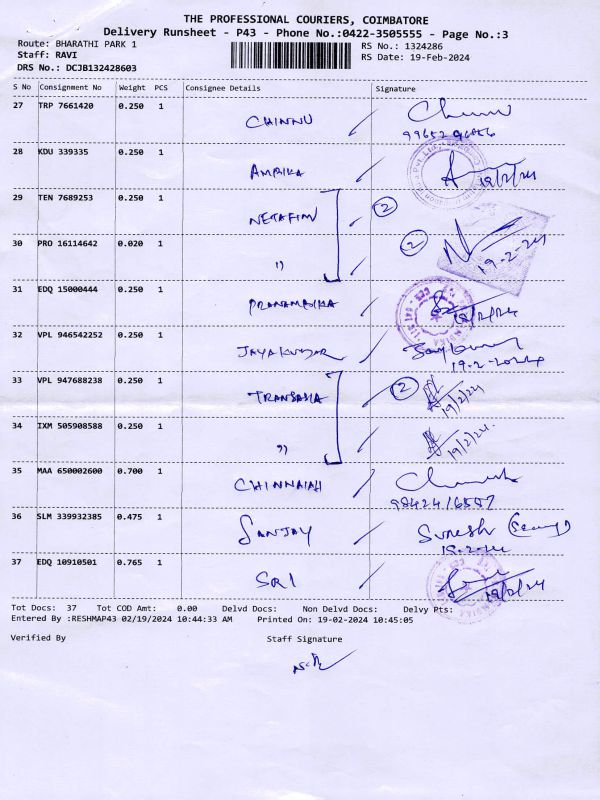 THE PROFESSIONAL COURIERS, COIMBATORE
Delivery Runsheet - P43 - Phone No.:0422-3505555 - Page No.:3
Route: BHARATHI PARK 1
RS No.: 1324286
Staff: RAVI
RS Date: 19-Feb-2024
DRS No.: DCJB132428603
S No Consignment No Weight PCS Consignee Details Signature
27 TRP 7661420 0.250 1 CHINNU
28 KDU 339335 0.250 1 AMBIKA 19/2/24
29 TEN 7689253 0.250 1 NETAFIM 2
30 PRO 16114642 0.020 1 " 2 19-2-24
31 EDQ 15000444 0.250 1 PRANAMBIKA 19/2/24
32 VPL 946542252 0.250 1 JAYAKUMAR
19-2-2024
33 VPL 947688238 0.250 1 TRANSASIA 2 19/2/24
34 IXM 505908588 0.250 1 " 19/2/24.
35 MAA 650002600 0.700 1 CHINNAIAH
36 SLM 339932385 0.475 1 SANJAY Suresh
19-2-24
37 EDQ 10910501 0.765 1 SRI 19/2/24
Tot Docs: 37 Tot COD Amt: 0.00 Delvd Docs: Non Delvd Docs: Delvy Pts:
Entered By :RESHMAP43 02/19/2024 10:44:33 AM Printed On: 19-02-2024 10:45:05
Verified By Staff Signature